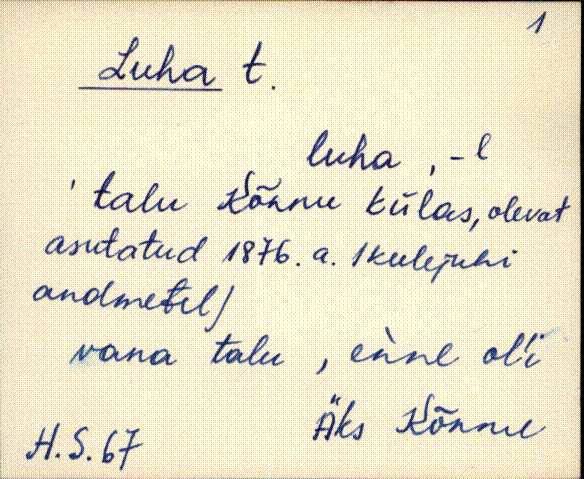 1
Luha t.
luha, -l
' talu Kõnnu külas, olevat
asutatud 1876. a. /kulejuhi
andmetel/
vana talu, enne ol'i
Äks Kõnnu
H.S.67